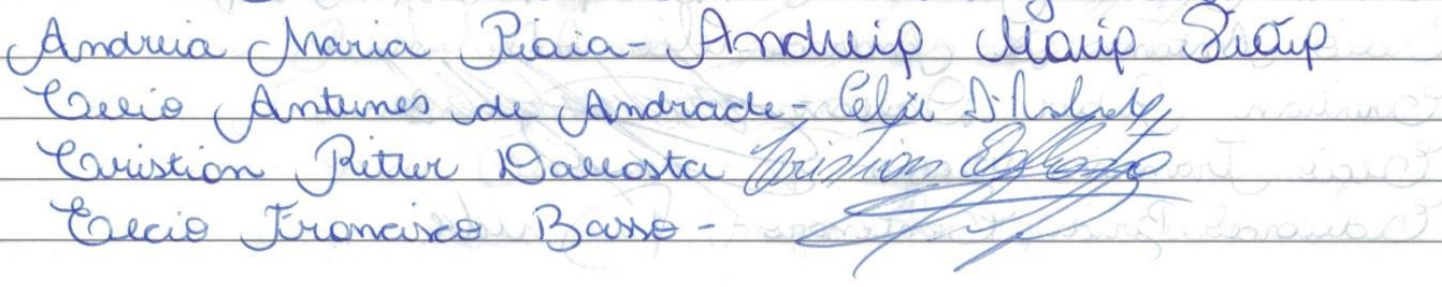 Andreia Maria Piaia - Andreia Maria Piaia
Celio Antunes de Andrade - Celio
Cristian Ritter Dallosta Cristian
Elcio Francisco Basso -